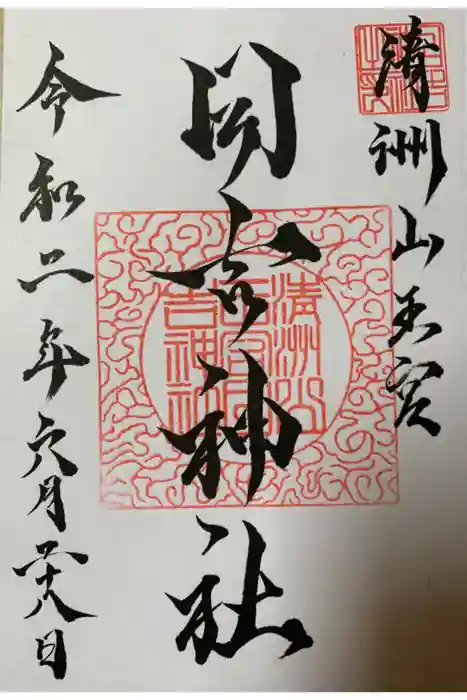 清洲山王宮
日吉神社
清洲山
王宮日
吉神社
令和二年六月二十八日